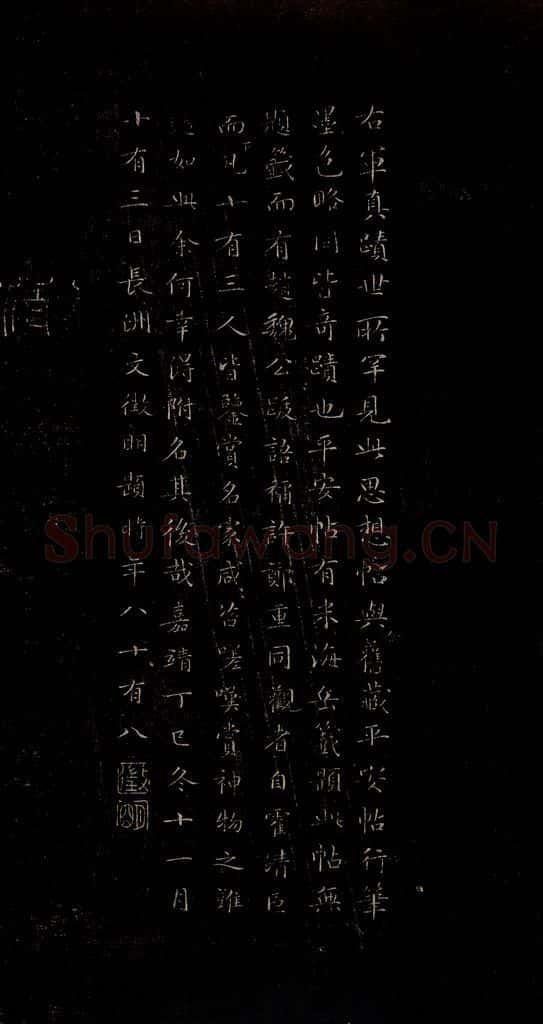 右軍真蹟世所罕見此思想帖與舊藏平安帖行筆
墨色略同皆奇蹟也平安帖有米海岳籤題此帖無
題籤而有趙魏公跋語稱許鄭重同觀者自霍清臣
而凡十有三人皆鑒賞名家咸咨嗟嘆賞神物之難
遇如此余何幸得附名其後哉嘉靖丁巳冬十一月
十有三日長洲文徵明題時年八十有八
徵明
Shufawang.CN